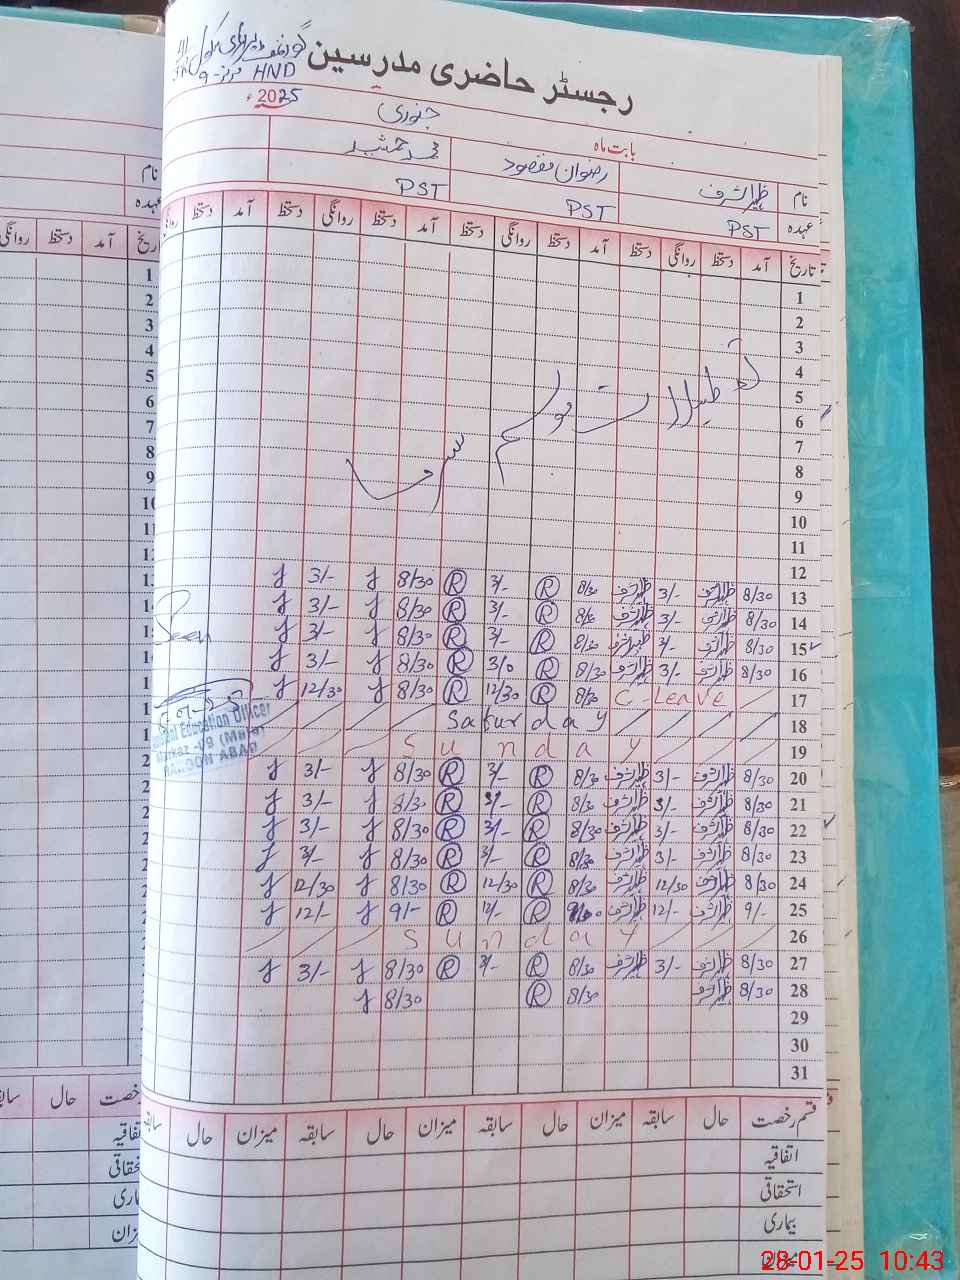 رجسٹر حاضری مدرسین
HND مرکز-9
2025ء
بابت ماہ جنوری
نام ظہیر اشرف رضوان مقصود محمد جمشید
عہدہ PST PST PST
تاریخ آمد دستخط روانگی دستخط آمد دستخط روانگی دستخط آمد دستخط روانگی دستخط آمد دستخط
1
2
3
4
5
6
7
8
9
10
11
تعطیلات موسم سرما
12
13 8/30 3/- 8/30 R 3/- R 8/30 3/-
14 8/30 3/- 8/30 R 3/- R 8/30 3/-
15 8/30 3/- 8/30 R 3/- R 8/30 3/-
Seen
16 8/30 3/- 8/30 R 3/0 R 8/30 3/-
17 C-Leave 8/30 R 12/30 R 8/30 12/30
18 Saturday
19 Sunday
Education Officer
Markaz-09
20 8/30 3/- 8/30 R 3/- R 8/30 3/-
21 8/30 3/- 8/30 R 3/- R 8/30 3/-
22 8/30 3/- 8/30 R 3/- R 8/30 3/-
23 8/30 3/- 8/30 R 3/- R 8/30 3/-
24 8/30 12/30 8/30 R 12/30 R 8/30 12/30
25 9/- 12/- R 12/- R 9/- 12/-
26 Sunday
27 8/30 3/- 8/30 R 3/- R 8/30 3/-
28 8/30 8/30 R 8/30
29
30
31
قسم رخصت حال سابقہ میزان حال سابقہ میزان حال سابقہ میزان حال
اتفاقیہ
استحقاقی
بیماری
میزان
نام
عہدہ
آمد دستخط روانگی
1
2
3
4
5
6
7
8
9
رخصت حال
28-01-25 10:43